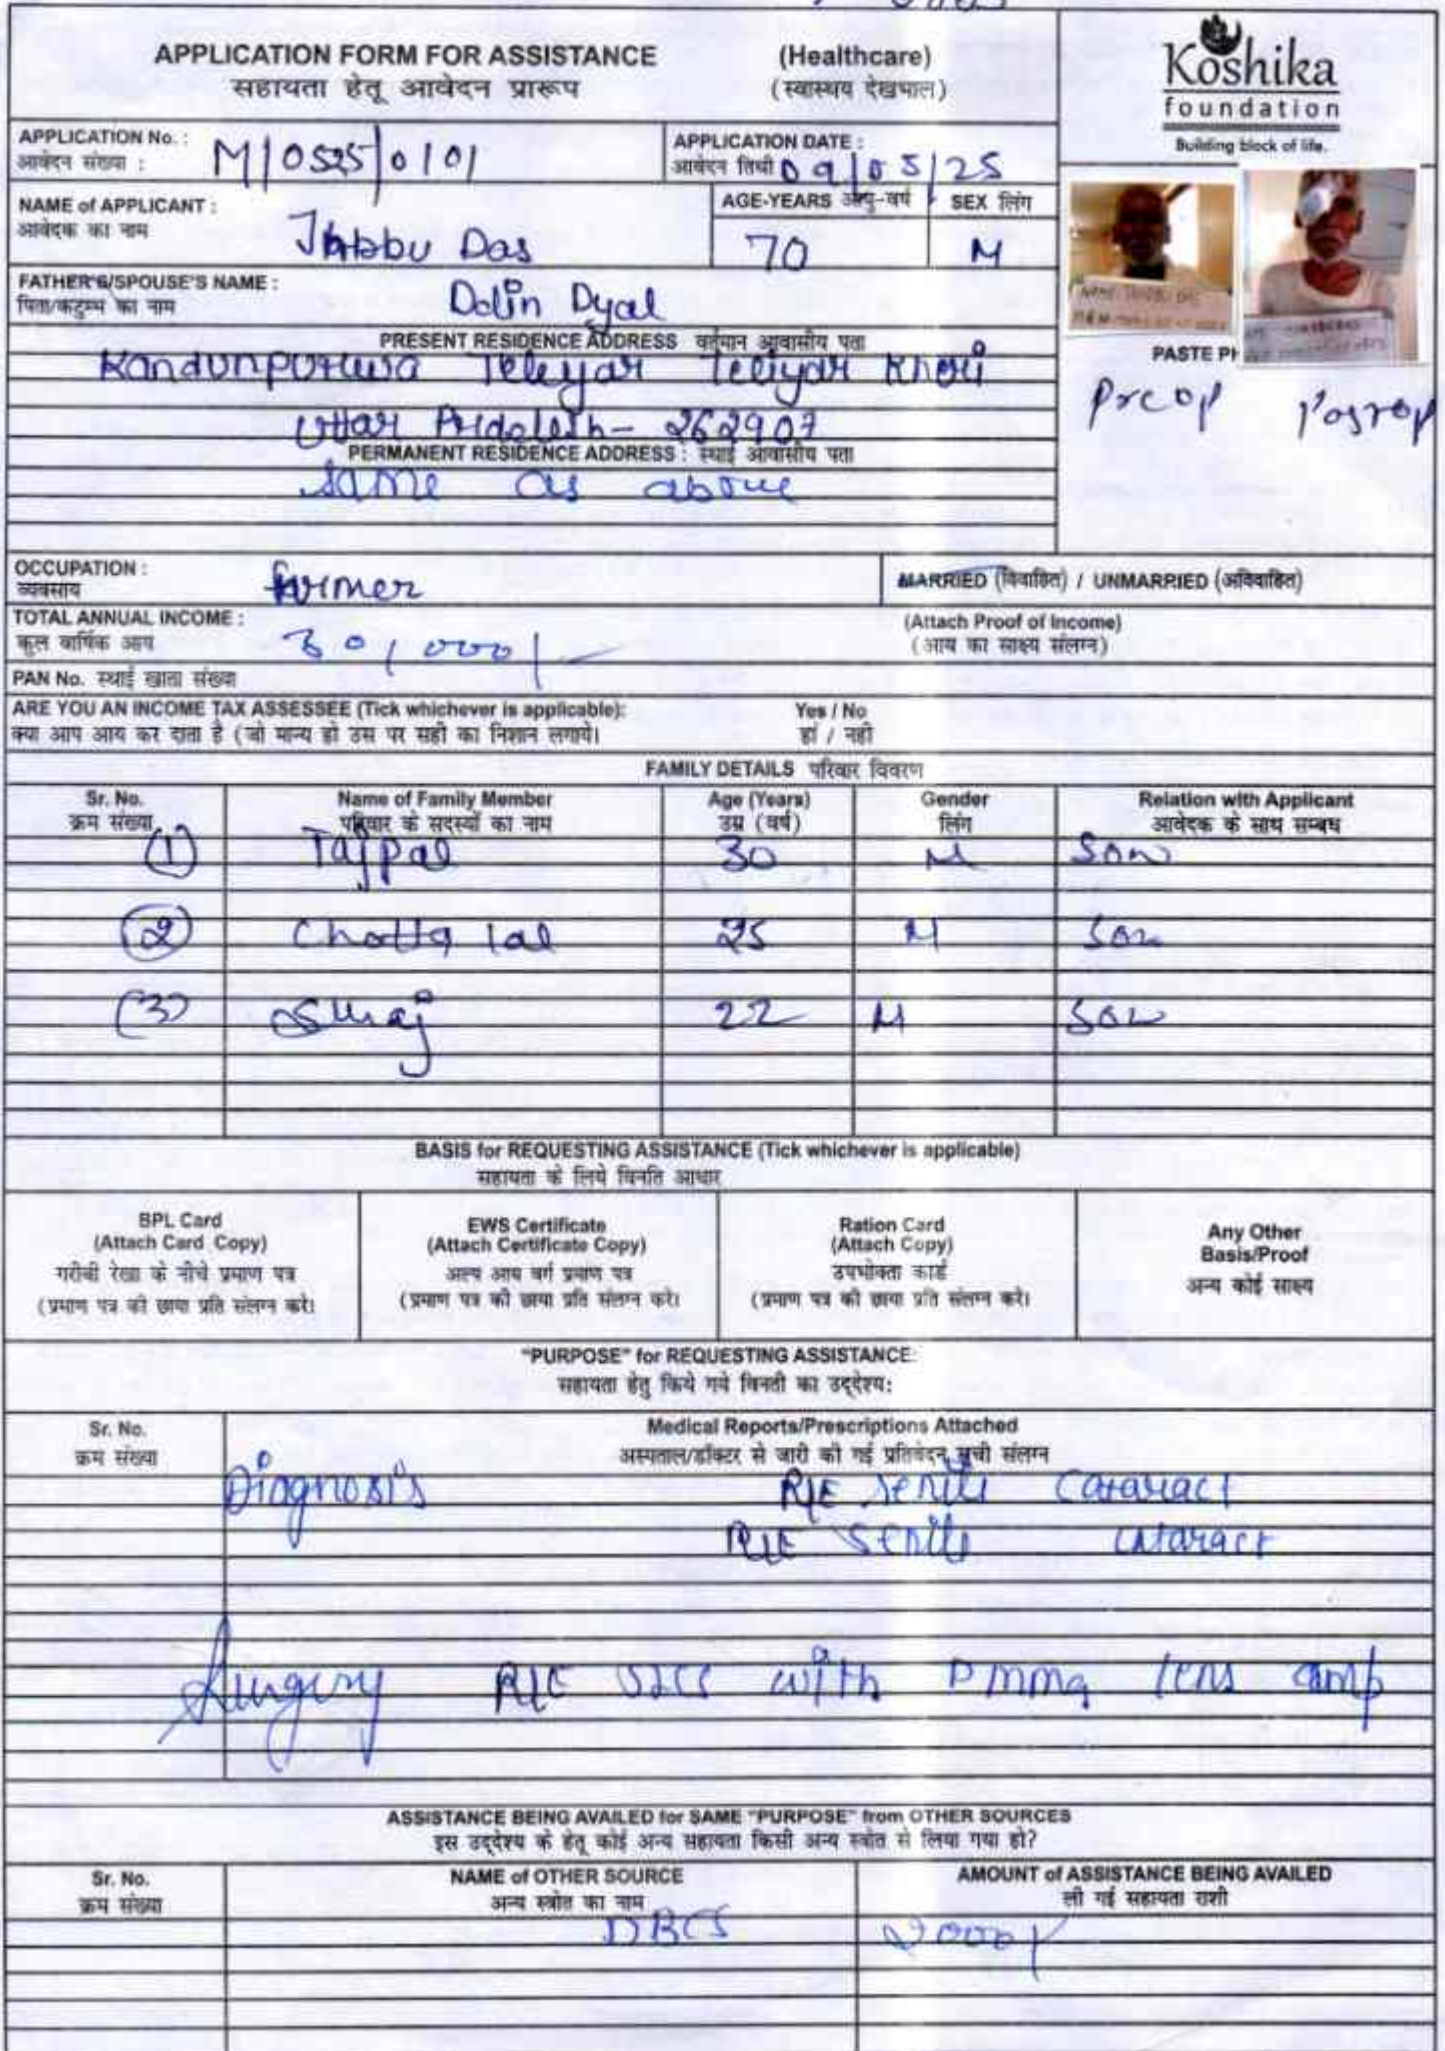 APPLICATION FORM FOR ASSISTANCE (Healthcare)
सहायता हेतू आवेदन प्रारूप (स्वास्थय देखभाल)
Koshika
foundation
Building block of life.
APPLICATION No. :
आवेदन संख्या : M/0525/0101
APPLICATION DATE :
आवेदन तिथी 09/05/25
NAME of APPLICANT :
आवेदक का नाम
Jhabbu Das
AGE-YEARS आयु-वर्ष
70
SEX लिंग
M
FATHER'S/SPOUSE'S NAME :
पिता/कटुम्ब का नाम
Dolin Dyal
PRESENT RESIDENCE ADDRESS वर्तमान आवासीय पता
Teliyar Kheri
Uttar 262907
PERMANENT RESIDENCE ADDRESS : स्थाई आवासीय पता
same as above
PASTE PH
Preop Postop
OCCUPATION :
व्यवसाय
farmer
MARRIED (विवाहित) / UNMARRIED (अविवाहित)
TOTAL ANNUAL INCOME :
कुल वार्षिक आय
30,000/-
(Attach Proof of Income)
(आय का साक्ष्य संलग्न)
PAN No. स्थाई खाता संख्या
ARE YOU AN INCOME TAX ASSESSEE (Tick whichever is applicable): Yes / No
क्या आप आय कर दाता है (जो मान्य हो उस पर सही का निशान लगाये। हां / नही
FAMILY DETAILS परिवार विवरण
Sr. No. Name of Family Member Age (Years) Gender Relation with Applicant
क्रम संख्या परिवार के सदस्यों का नाम उम्र (वर्ष) लिंग आवेदक के साथ सम्बध
(1) Tajpal 30 M Son
(2) Chotta lal 25 M Son
(3) Suraj 22 M Son
BASIS for REQUESTING ASSISTANCE (Tick whichever is applicable)
सहायता के लिये विनति आधार
BPL Card
(Attach Card Copy)
गरीबी रेखा के नीचे प्रमाण पत्र
(प्रमाण पत्र की छाया प्रति संलग्न करे।
EWS Certificate
(Attach Certificate Copy)
अल्प आय वर्ग प्रमाण पत्र
(प्रमाण पत्र की छाया प्रति संलग्न करे।
Ration Card
(Attach Copy)
उपभोक्ता कार्ड
(प्रमाण पत्र की छाया प्रति संलग्न करे।
Any Other
Basis/Proof
अन्य कोई साक्ष्य
"PURPOSE" for REQUESTING ASSISTANCE:
सहायता हेतु किये गये विनती का उद्देश्य:
Sr. No. Medical Reports/Prescriptions Attached
क्रम संख्या अस्पताल/डॉक्टर से जारी की गई प्रतिवेदन सूची संलग्न
Diagnosis R/E senile Cataract
senile cataract
Surgery R/E SICS with Pmma lens camp
ASSISTANCE BEING AVAILED for SAME "PURPOSE" from OTHER SOURCES
इस उद्देश्य के हेतू कोई अन्य सहायता किसी अन्य स्त्रोत से लिया गया हो?
Sr. No. NAME of OTHER SOURCE AMOUNT of ASSISTANCE BEING AVAILED
क्रम संख्या अन्य स्त्रोत का नाम ली गई सहायता राशी
DBCS 2000/